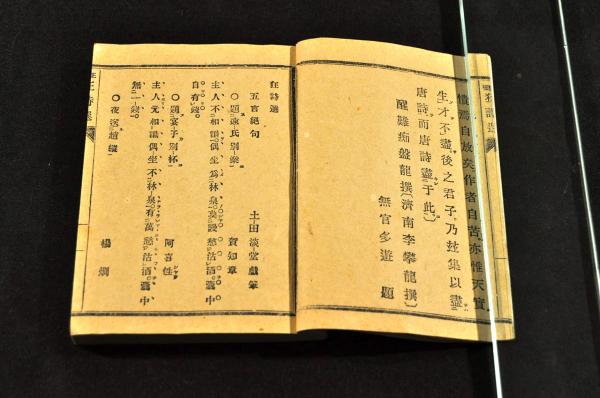 自放矣作者自苦亦惟天實
生才不盡後之君子乃玆集以盡
唐詩而唐詩盡于此
醒雖痴盤龍撰(濟南李攀龍撰)
無官多遊題
狂詩選
五言絶句 土田淡堂戲筆
○題袁氏別業 賀知章
主人不相識偶坐爲林泉莫謾愁沽酒囊中
自有錢
○題宴子別杯 阿喜性
主人元相識偶坐不林泉有萬愁沽酒囊中
無一錢
○夜送趙縱 楊烱